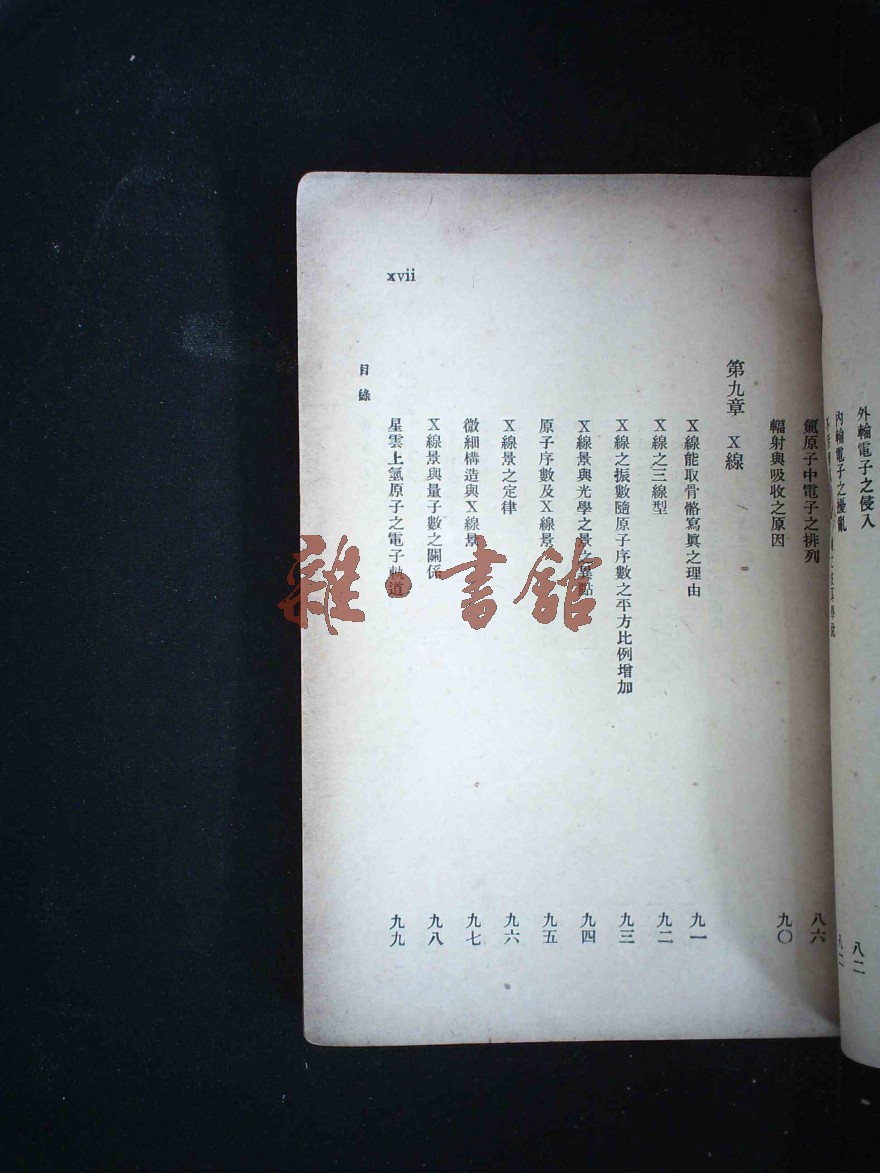 外輪電子之侵入 八二
內輪電子之擾亂
氮原子中電子之排列 八六
輻射與吸收之原因 九〇
第九章 X線
X線能取骨骼寫眞之理由 九一
X線之三線型 九二
X線之振數隨原子序數之平方比例增加 九三
X線景與光學之景之異點 九四
原子序數及X線景 九五
X線景之定律 九六
微細構造與X線景 九七
X線景與量子數之關係 九八
星雲上氫原子之電子軌道 九九
目錄
xvii
雜·書館